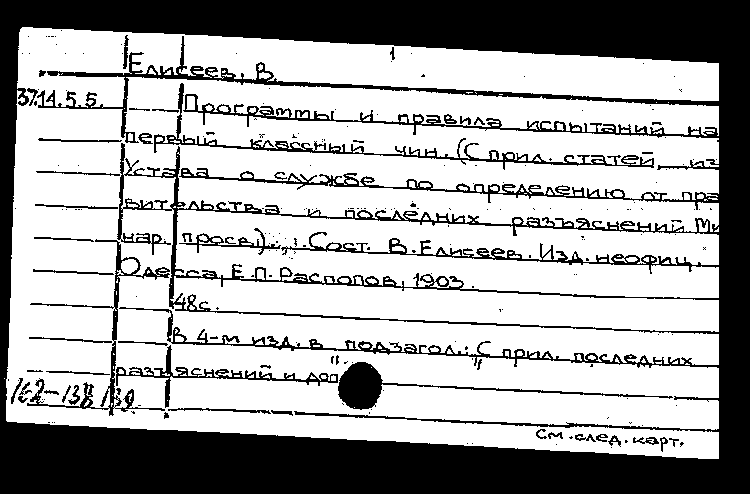 1
Елисеев, В.
37.14.5.5. Программы и правила испытаний на
первый классный чин. (С прил. статей, из
Устава о службе по определению от пра
вительства и последних разъяснений Ми
нар. просв.)... Сост. В. Елисеев. Изд. неофиц.
Одесса, Е.П. Распопов, 1903.
48с.
В 4-м изд. в подзагол.: "С прил. последних
разъяснений и доп"
162-138
См. след. карт.